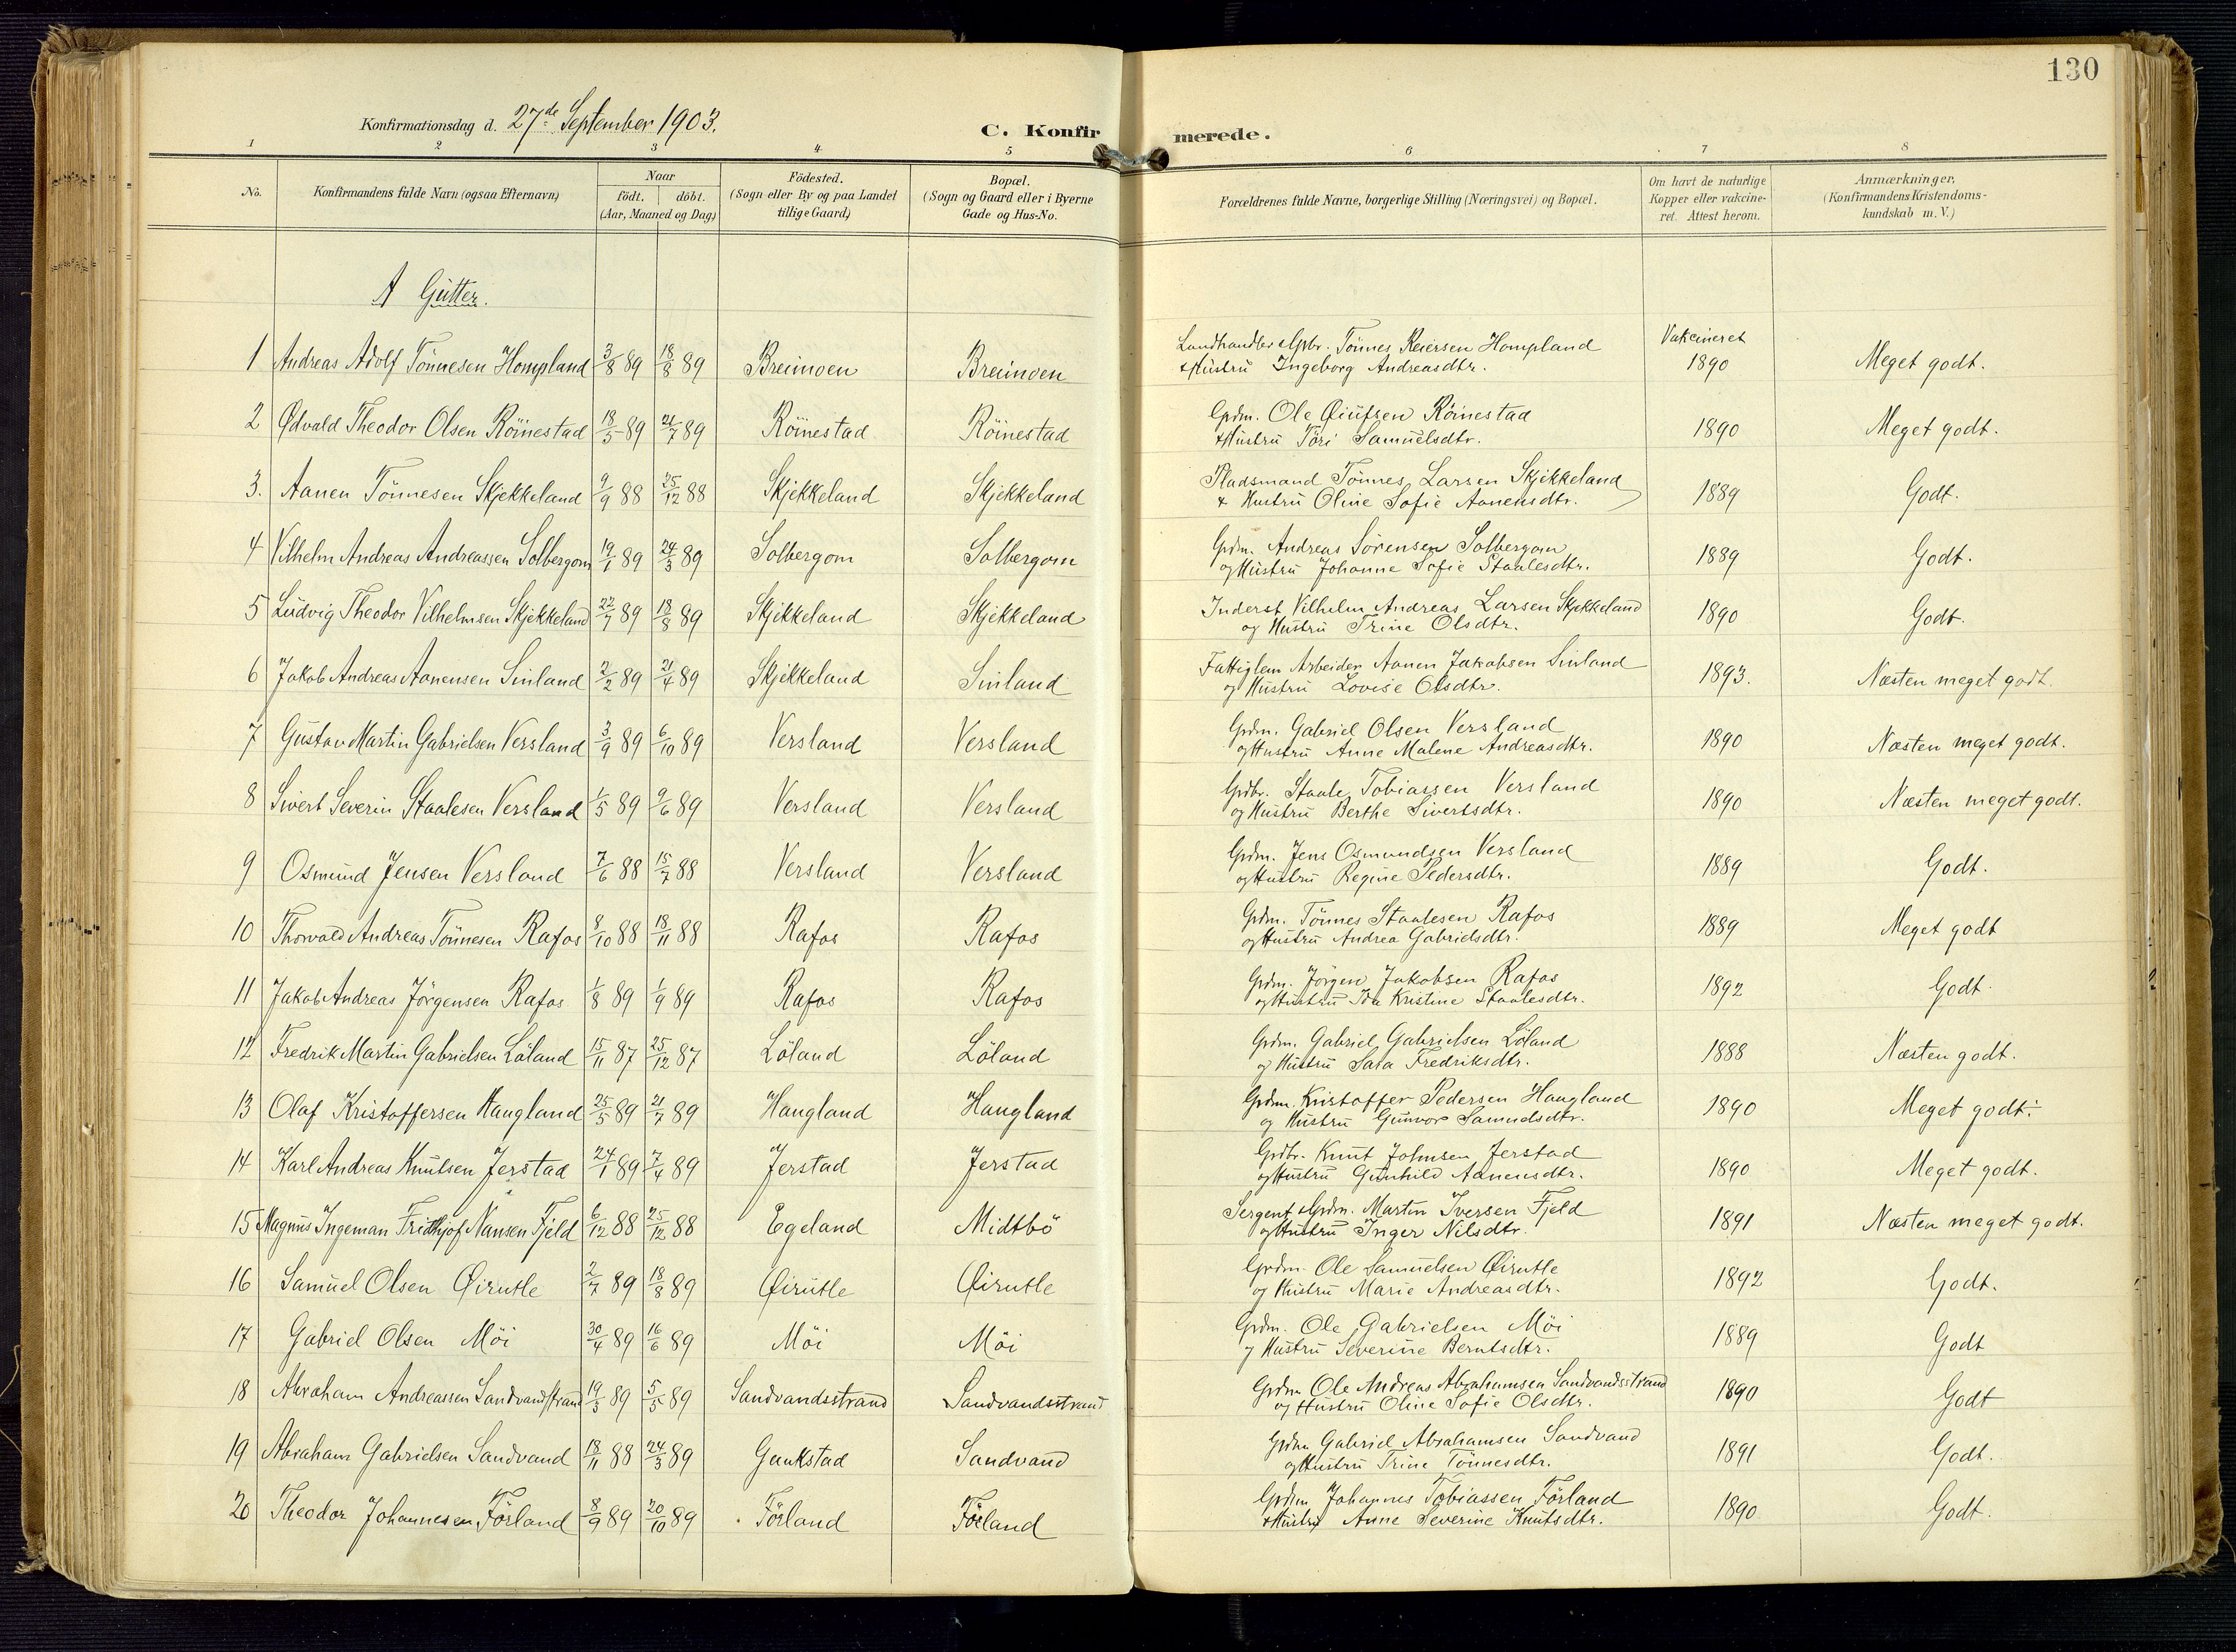 130
Konfirmationsdag d. 27de September 1903.
C. Konfirmerede.
1 2 3 4 5 6 7 8
No. Konfirmandens fulde Navn (ogsaa Efternavn) Naar födt. döbt. (Aar, Maaned og Dag) Födested. (Sogn eller By og paa Landet tillige Gaard) Bopæl. (Sogn og Gaard eller i Byerne Gade og Hus-No. Forældrenes fulde Navne, borgerlige Stilling (Næringsvei) og Bopæl. Om havt de naturlige Kopper eller vakcineret. Attest herom. Anmærkninger. (Konfirmandens Kristendomskundskab m. V.)
A Gutter.
1 Andreas Adolf Tönnesen Hompland 3/8 89 18/8 89 Breimoen Breimoen Landhandler & Gpbr. Tönnes Reiersen Hompland Vakcineret 1890 Meget godt.
& Hustru Ingeborg Andreasdtr.
2 Ødvald Theodor Olsen Röinestad 18/5 89 21/7 89 Röinestad Röinestad Grdm. Ole Øiufsen Röinestad 1890 Meget godt.
& Hustru Töri Samuelsdtr.
3. Aanen Tönnesen Skjekkeland 9/9 88 25/12 88 Skjekkeland Skjekkeland Pladsmand Tönnes Larsen Skjekkeland 1889 Godt.
& Hustru Oline Sofie Aanensdtr.
4 Vilhelm Andreas Andreassen Solbergom 19/1 89 24/3 89 Solbergom Solbergom Grdm. Andreas Sörensen Solbergom 1889 Godt.
og Hustru Johanne Sofie Staalesdtr.
5 Ludvig Theodor Vilhelmsen Skjekkeland 22/7 89 18/8 89 Skjekkeland Skjekkeland Inderst Vilhelm Andreas Larsen Skjekkeland 1890 Godt.
og Hustru Trine Olsdtr.
6 Jakob Andreas Aanensen Sinland 2/2 89 21/4 89 Skjekkeland Sinland Fattiglem Arbeider Aanen Jakobsen Sinland 1893. Næsten meget godt.
og Hustru Lovise Olsdtr.
7 Gustav Martin Gabrielsen Versland 3/9 89 6/10 89 Versland Versland Grdm. Gabriel Olsen Versland 1890 Næsten meget godt.
og Hustru Anne Malene Andreasdtr.
8 Sivert Severin Staalesen Versland 1/5 89 9/6 89 Versland Versland Grdbr. Staale Tobiassen Versland 1890 Næsten meget godt.
og Hustru Berthe Sivertsdtr.
9 Osmund Jensen Versland 7/6 88 15/7 88 Versland Versland Grdm. Jens Osmundsen Versland 1889 Godt.
og Hustru Regine Pedersdtr.
10 Thorvald Andreas Tönnesen Rafos 8/10 88 18/11 88 Rafos Rafos Grdm. Tönnes Staalesen Rafos 1889 Meget godt
og Hustru Andrea Gabrielsdtr.
11 Jakob Andreas Jörgensen Rafos 1/8 89 1/9 89 Rafos Rafos Grdm. Jörgen Jakobsen Rafos 1892 Godt.
og Hustru Ida Kristine Staalesdtr.
12 Fredrik Martin Gabrielsen Löland 15/11 87 25/12 87 Löland Löland Grdm. Gabriel Gabrielsen Löland 1888 Næsten godt.
og Hustru Sara Fredriksdtr.
13 Olaf Kristoffersen Haugland 25/5 89 21/7 89 Haugland Haugland Grdm. Kristoffer Pedersen Haugland 1890 Meget godt÷
og Hustru Gunvor Samuelsdtr.
14 Karl Andreas Knutsen Jerstad 24/1 89 7/4 89 Jerstad Jerstad Grdbr. Knut Johnsen Jerstad 1890 Meget godt.
og Hustru Gunhild Aanensdtr.
15 Magnus Ingeman Fridthjof Nansen Fjeld 6/12 88 25/12 88 Egeland Midtbö Sergent & Grdm. Martin Iversen Fjeld 1891 Næsten meget godt.
og Hustru Inger Nilsdtr.
16 Samuel Olsen Øirutle 2/7 89 18/8 89 Øirutle Øirutle Grdm. Ole Samuelsen Øirutle 1892 Godt.
og Hustru Marie Andreasdtr.
17 Gabriel Olsen Möi 30/4 89 16/6 89 Möi Möi Grdm. Ole Gabrielsen Möi 1889 Godt
og Hustru Severine Berntsdtr.
18 Abraham Andreassen Sandvandstrand 19/3 89 5/5 89 Sandvandsstrand Sandvandsstrand Grdm Ole Andreas Abrahamsen Sandvandsstrand 1890 Godt
og Hustru Oline Sofie Olsdtr.
19 Abraham Gabrielsen Sandvand 18/11 88 24/3 89 Gaukstad Sandvand Grdm Gabriel Abrahamsen Sandvand 1891 Godt.
og Hustru Trine Tönnesdtr.
20 Theodor Johannesen Förland 8/9 89 20/10 89 Förland Förland Grdm Johannes Tobiassen Förland 1890 Godt.
& Hustru Anne Severine Knutsdtr.